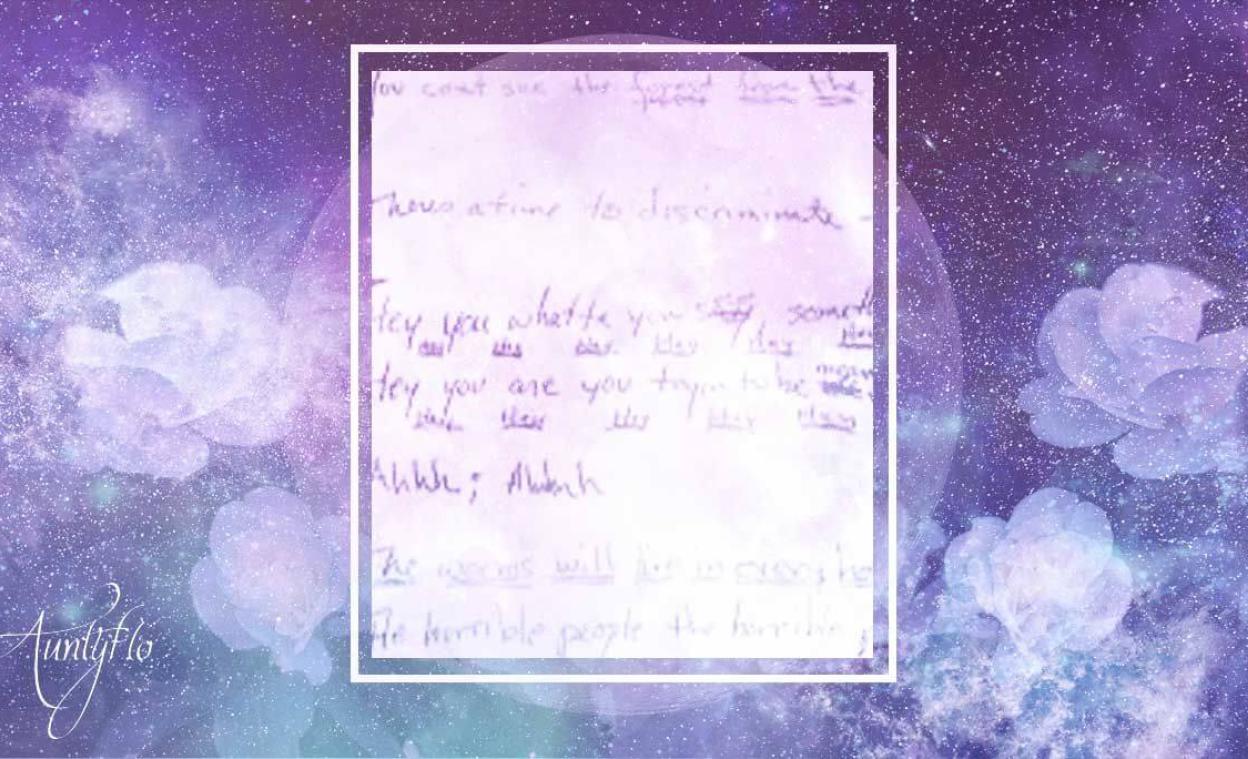 You cant see the forest from the
Theres a time to discriminate -
Hey you whatta you say someth
Hey Hey Hey Hey Hey Hey
Hey you are you tryin to be mean
Hey Hey Hey Hey Hey
Ahhh; Ahhhh
The worms will live in every ho
The horrible people the horrible
AuntyFlo